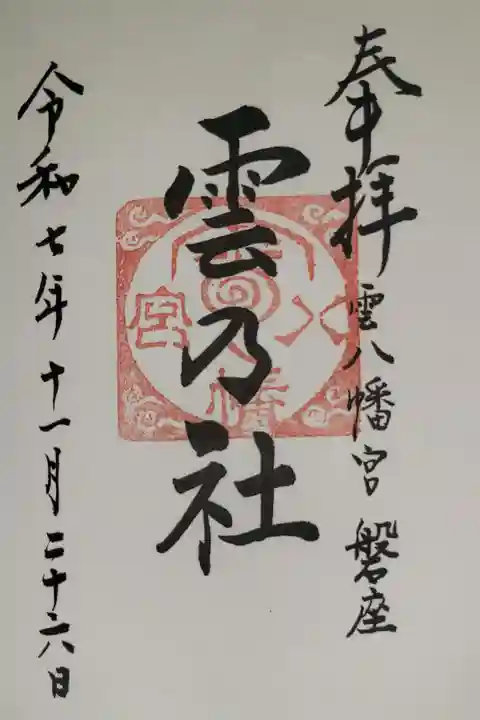 奉拝 雲八幡宮 磐座
雲乃社
雲八幡宮
令和七年十一月二十六日